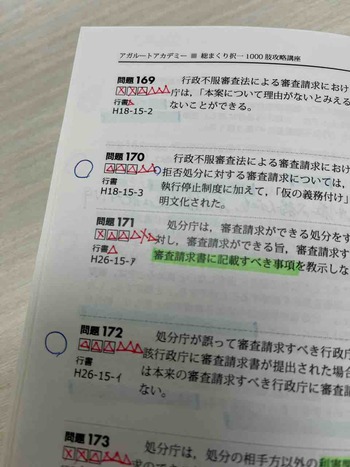 アガルートアカデミー ≡ 総まくり択一1000肢攻略講座
問題169
行政不服審査法による審査請求におけ
庁は,「本案について理由がないとみえる
行書
ないことができる。
H18-15-2
問題170
行政不服審査法による審査請求におけ
拒否処分に対する審査請求については,
行書
執行停止制度に加えて,「仮の義務付け」
H18-15-3
明文化された。
問題171
処分庁は,審査請求ができる処分をす
対し,審査請求ができる旨,審査請求す
行書
審査請求書に記載すべき事項を教示しな
H26-15-ア
問題172
処分庁が誤って審査請求すべき行政庁
該行政庁に審査請求書が提出された場合
行書
は本来の審査請求すべき行政庁に審査請
H26-15-イ
ない。
問題173
処分庁は,処分の相手方以外の利害関